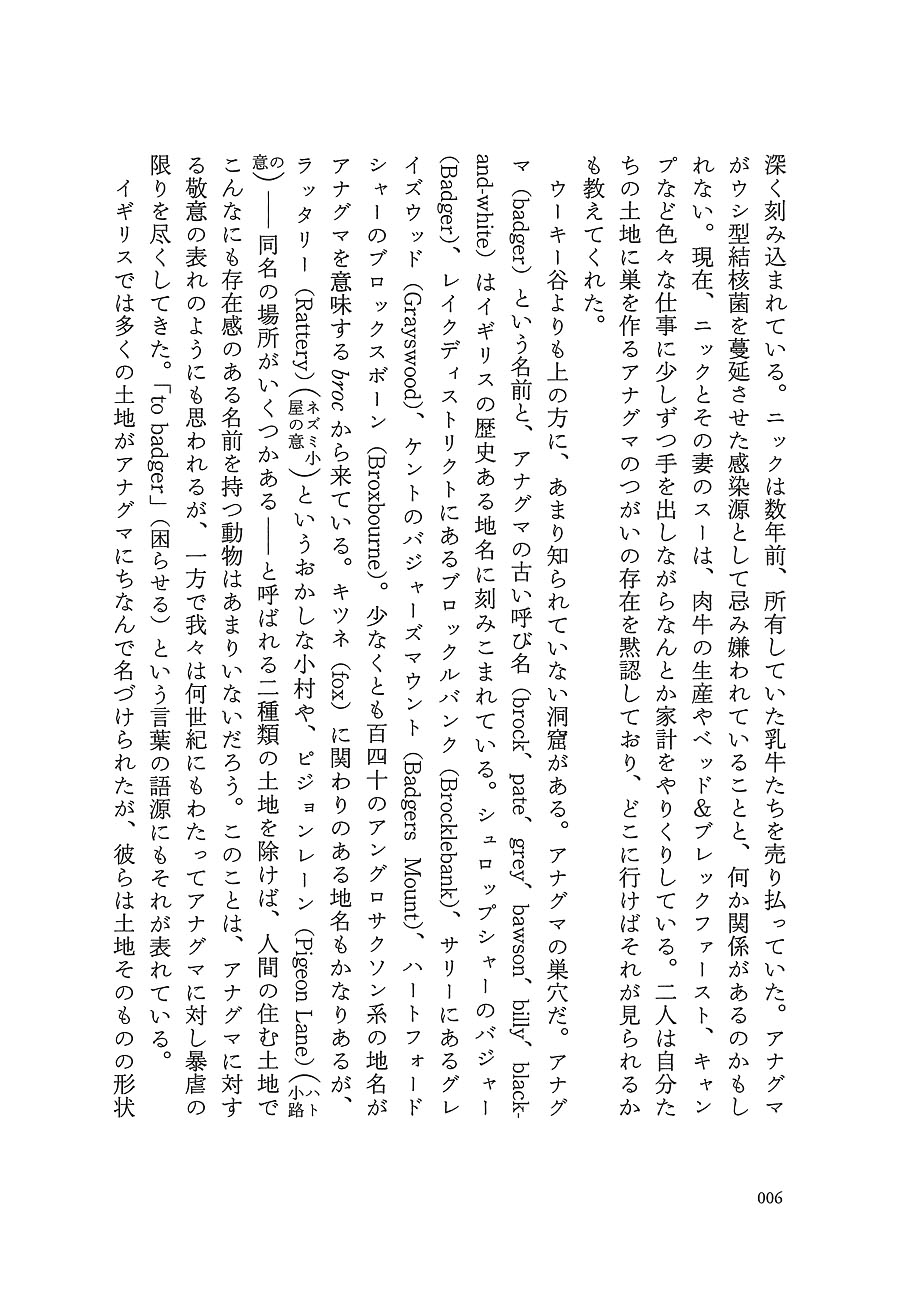 深く刻み込まれている。ニックは数年前、所有していた乳牛たちを売り払っていた。アナグマ
がウシ型結核菌を蔓延させた感染源として忌み嫌われていることと、何か関係があるのかもし
れない。現在、ニックとその妻のスーは、肉牛の生産やベッド&ブレックファースト、キャン
プなど色々な仕事に少しずつ手を出しながらなんとか家計をやりくりしている。二人は自分た
ちの土地に巣を作るアナグマのつがいの存在を黙認しており、どこに行けばそれが見られるか
も教えてくれた。
ウーキー谷よりも上の方に、あまり知られていない洞窟がある。アナグマの巣穴だ。アナグ
マ（badger）という名前と、アナグマの古い呼び名（brock、pate、grey、bawson、billy、black-
and-white）はイギリスの歴史ある地名に刻みこまれている。シュロップシャーのバジャー
（Badger）、レイクディストリクトにあるブロックルバンク（Brocklebank）、サリーにあるグレ
イズウッド（Grayswood）、ケントのバジャーズマウント（Badgers Mount）、ハートフォード
シャーのブロックスボーン（Broxbourne）。少なくとも百四十のアングロサクソン系の地名が
アナグマを意味する broc から来ている。キツネ（fox）に関わりのある地名もかなりあるが、
ラッタリー（Rattery）（ネズミ小屋の意）というおかしな小村や、ピジョンレーン（Pigeon Lane）（ハト小路
の意）――同名の場所がいくつかある――と呼ばれる二種類の土地を除けば、人間の住む土地で
こんなにも存在感のある名前を持つ動物はあまりいないだろう。このことは、アナグマに対す
る敬意の表れのようにも思われるが、一方で我々は何世紀にもわたってアナグマに対し暴虐の
限りを尽くしてきた。「to badger」（困らせる）という言葉の語源にもそれが表れている。
イギリスでは多くの土地がアナグマにちなんで名づけられたが、彼らは土地そのものの形状
006